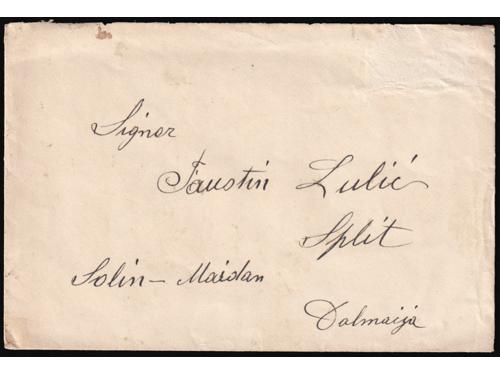 Signor
Faustin Lulić
Split
Solin - Majdan
Dalmaija